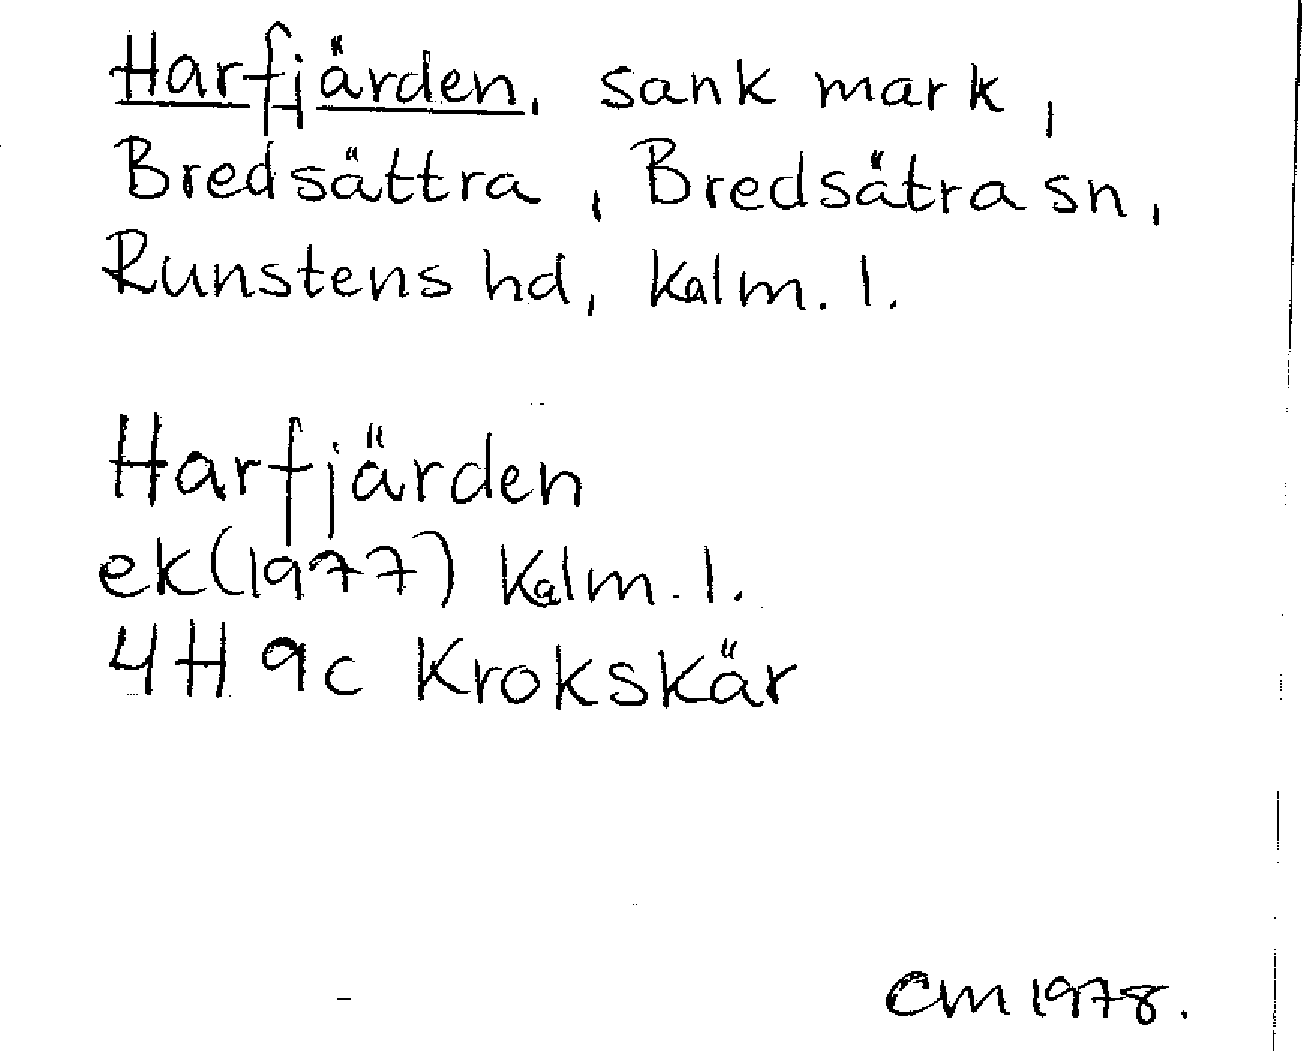 Harfjärden, sank mark,
Bredsättra, Bredsätra sn,
Runstens hd, Kalm. l.
Harfjärden
ek(1977) Kalm. l.
4H 9c Krokskär
CM 1978.